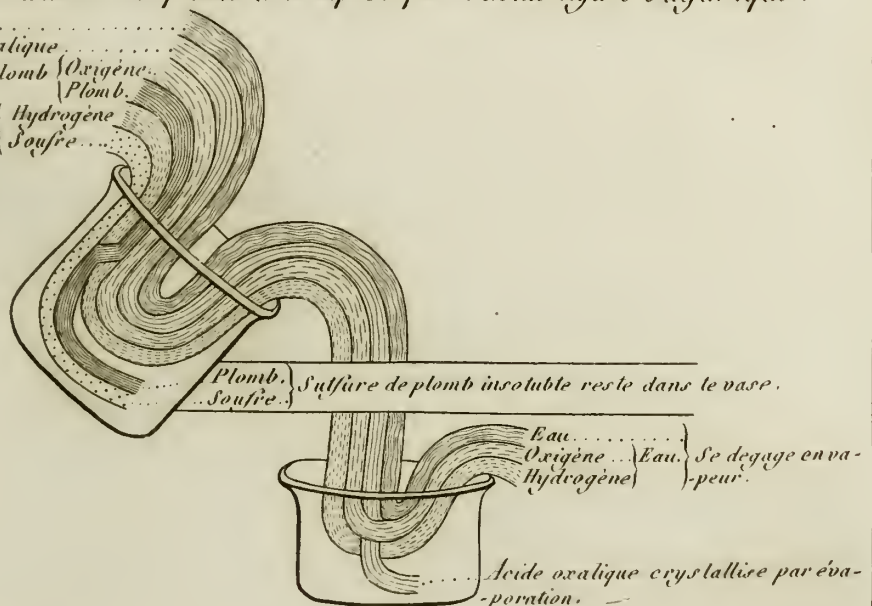 . . . . . . . . . . . . . . . .
alique . . . . . . . . . . . .
lomb { Oxigène . .
Plomb.
Hydrogène
Soufre . . . .
. . . . . Plomb.
. . Soufre . . } Sulfure de plomb insoluble reste dans le vase.
Eau . . . . . . . . . .
Oxigène . . . } Eau. } Se degage en va-
Hydrogène -peur.
. . . . . Acide oxalique crystallise par éva-
-poration.